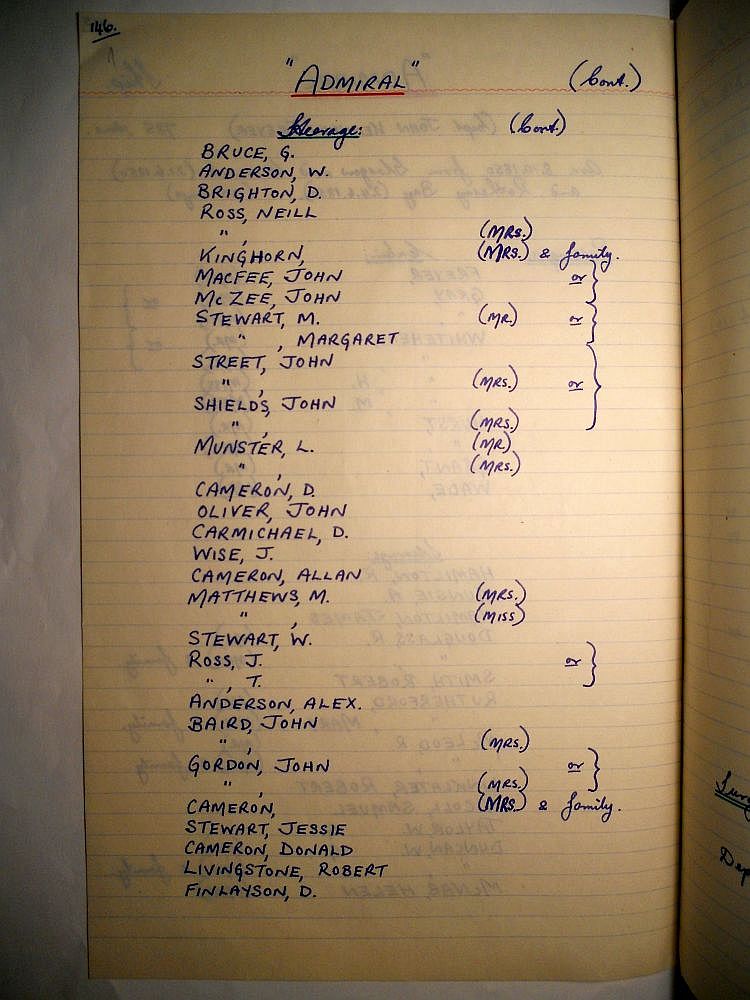 146.
"ADMIRAL" (Cont.)
Steerage: (Cont)
BRUCE, G.
ANDERSON, W.
BRIGHTON, D.
ROSS, NEILL
", (MRS.)
KINGHORN, (MRS.) & family.
MACFEE, JOHN or }
MCZEE, JOHN
STEWART, M. (MR.) or }
" , MARGARET
STREET, JOHN
", (MRS.) or }
SHIELDS, JOHN
", (MRS.)
MUNSTER, L. (MR.)
", (MRS.)
CAMERON, D.
OLIVER, JOHN
CARMICHAEL, D.
WISE, J.
CAMERON, ALLAN
MATTHEWS, M. (MRS.)
" , (MISS)
STEWART, W.
ROSS, J. or }
", T.
ANDERSON, ALEX.
BAIRD, JOHN
", (MRS.)
GORDON, JOHN or }
", (MRS.)
CAMERON, (MRS.) & family.
STEWART, JESSIE
CAMERON, DONALD
LIVINGSTONE, ROBERT
FINLAYSON, D.
Dep